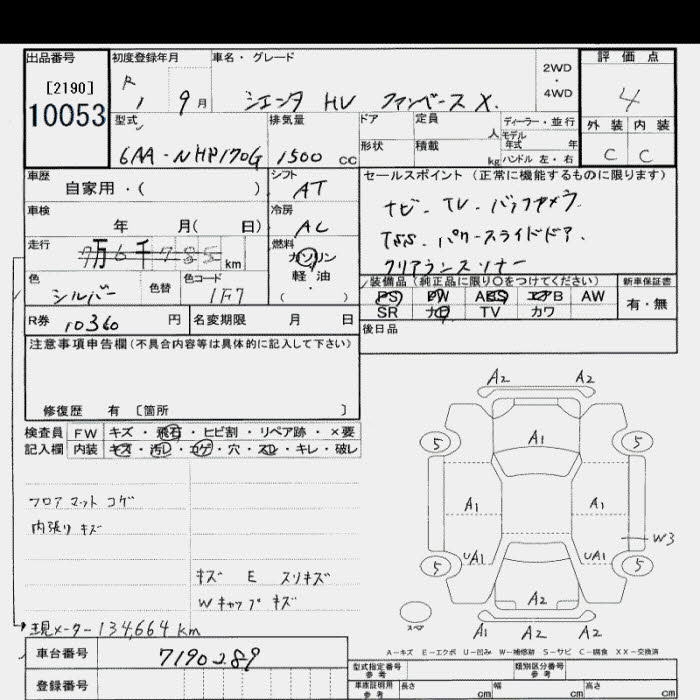 出品番号 初度登録年月 車名・グレード 2WD・4WD 評価点
[2190] R1 9月 シエンタ HV ファンベース X. 4
10053
型式 排気量 ドア 定員 人 ディーラー・並行 外装 内装
6AA-NHP170G 1500 cc 形状 積載 kg モデル年式 年 ハンドル 左・右 C C
車歴 シフト セールスポイント (正常に機能するものに限ります)
自家用・( ) AT ナビ-TV-バックカメラ
車検 冷房
年 月( 日) AC TSS. パワースライドドア.
走行 燃料
7万6千785km ガソリン クリアランスソナー
色 色替 色コード 軽・油 装備品(純正品に限り○をつけてください) 新車保証書
シルバー 1F7 ( ・ ) PS PW ABS エアB AW 有・無
SR ナビ TV カワ
R券 10360 円 名変期限 月 日 後日品
注意事項申告欄(不具合内容等は具体的に記入して下さい)
修復歴 有 〔箇所 〕
検査員 FW キズ・飛石・ヒビ割・リペア跡・×要
記入欄 内装 キズ・汚レ・コゲ・穴・スレ・キレ・破レ
フロアマット コゲ
内張り キズ
キズ E スリキズ
Wキャップ キズ
現メーター 134,664 km
車台番号 7190289
登録番号
A2 A2
A1
5 5
A1 A1
W3
UA1 UA1
5 5
A2
スペア A1 A2 A2
A-キズ E-エクボ U-凹み W-補修跡 S-サビ C-腐食 XX-交換済
型式指定番号 参考 類別区分番号 参考
車庫証明用 参考 長さ cm 幅 cm 高さ cm